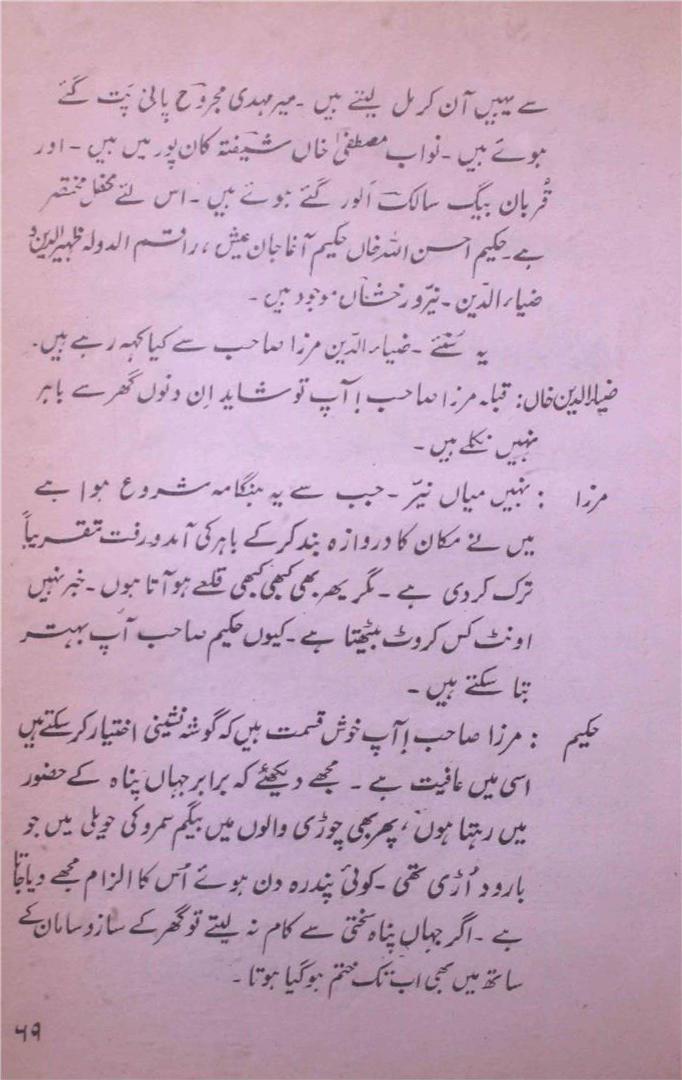 سے یہیں آن کر مل لیتے ہیں ۔ میر مہدی مجروح پانی پت گئے
ہوئے ہیں ۔ نواب مصطفیٰ خاں شیفتہ کان پور میں ہیں ۔ اور
قربان بیگ سالک اَلور گئے ہوئے ہیں ۔ اس لئے محفل مختصر
ہے۔ حکیم احسن اللہ خاں حکیم آغا جان عیش ، راقم الدولہ ظہیر الدین و
ضیاء الدین ۔ نیّر و رخشاں موجود ہیں ۔
یہ سُنئے ۔ ضیاء الدّین مرزا صاحب سے کیا کہہ رہے ہیں۔
ضیاء الدین خاں : قبلہ مرزا صاحب ! آپ تو شاید اِن دنوں گھر سے باہر
نہیں نکلے ہیں ۔
مرزا : نہیں میاں نیّر ۔ جب سے یہ ہنگامہ شروع ہوا ہے
میں نے مکان کا دروازہ بند کر کے باہر کی آمد و رفت تقریباً
ترک کر دی ہے ۔ مگر پھر بھی کبھی کبھی قلعے ہو آتا ہوں ۔ خبر نہیں
اونٹ کس کروٹ بیٹھتا ہے ۔ کیوں حکیم صاحب آپ بہتر
بتا سکتے ہیں ۔
حکیم : مرزا صاحب ! آپ خوش قسمت ہیں کہ گوشہ نشینی اختیار کر سکتے ہیں
اسی میں عافیت ہے ۔ مجھے دیکھئے کہ برابر جہاں پناہ کے حضور
میں رہتا ہوں ، پھر بھی چوڑی والوں میں بیگم سمرو کی حویلی میں جو
بارود اُڑی تھی ۔ کوئی پندرہ دن ہوئے اُس کا الزام مجھے دیا جاتا
ہے ۔ اگر جہاں پناہ سختی سے کام نہ لیتے تو گھر کے ساز و سامان کے
ساتھ میں بھی اب تک ختم ہو گیا ہوتا ۔
۶۹